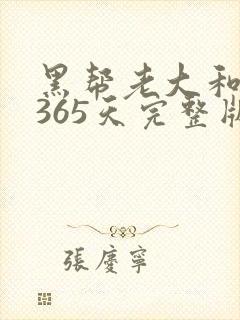 黑帮老大和
365天完整版
張慶寧